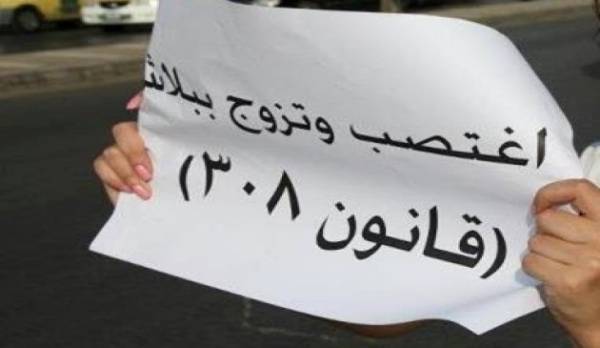 اغتصب وتزوج ببلاش
(قانون ٣٠٨)